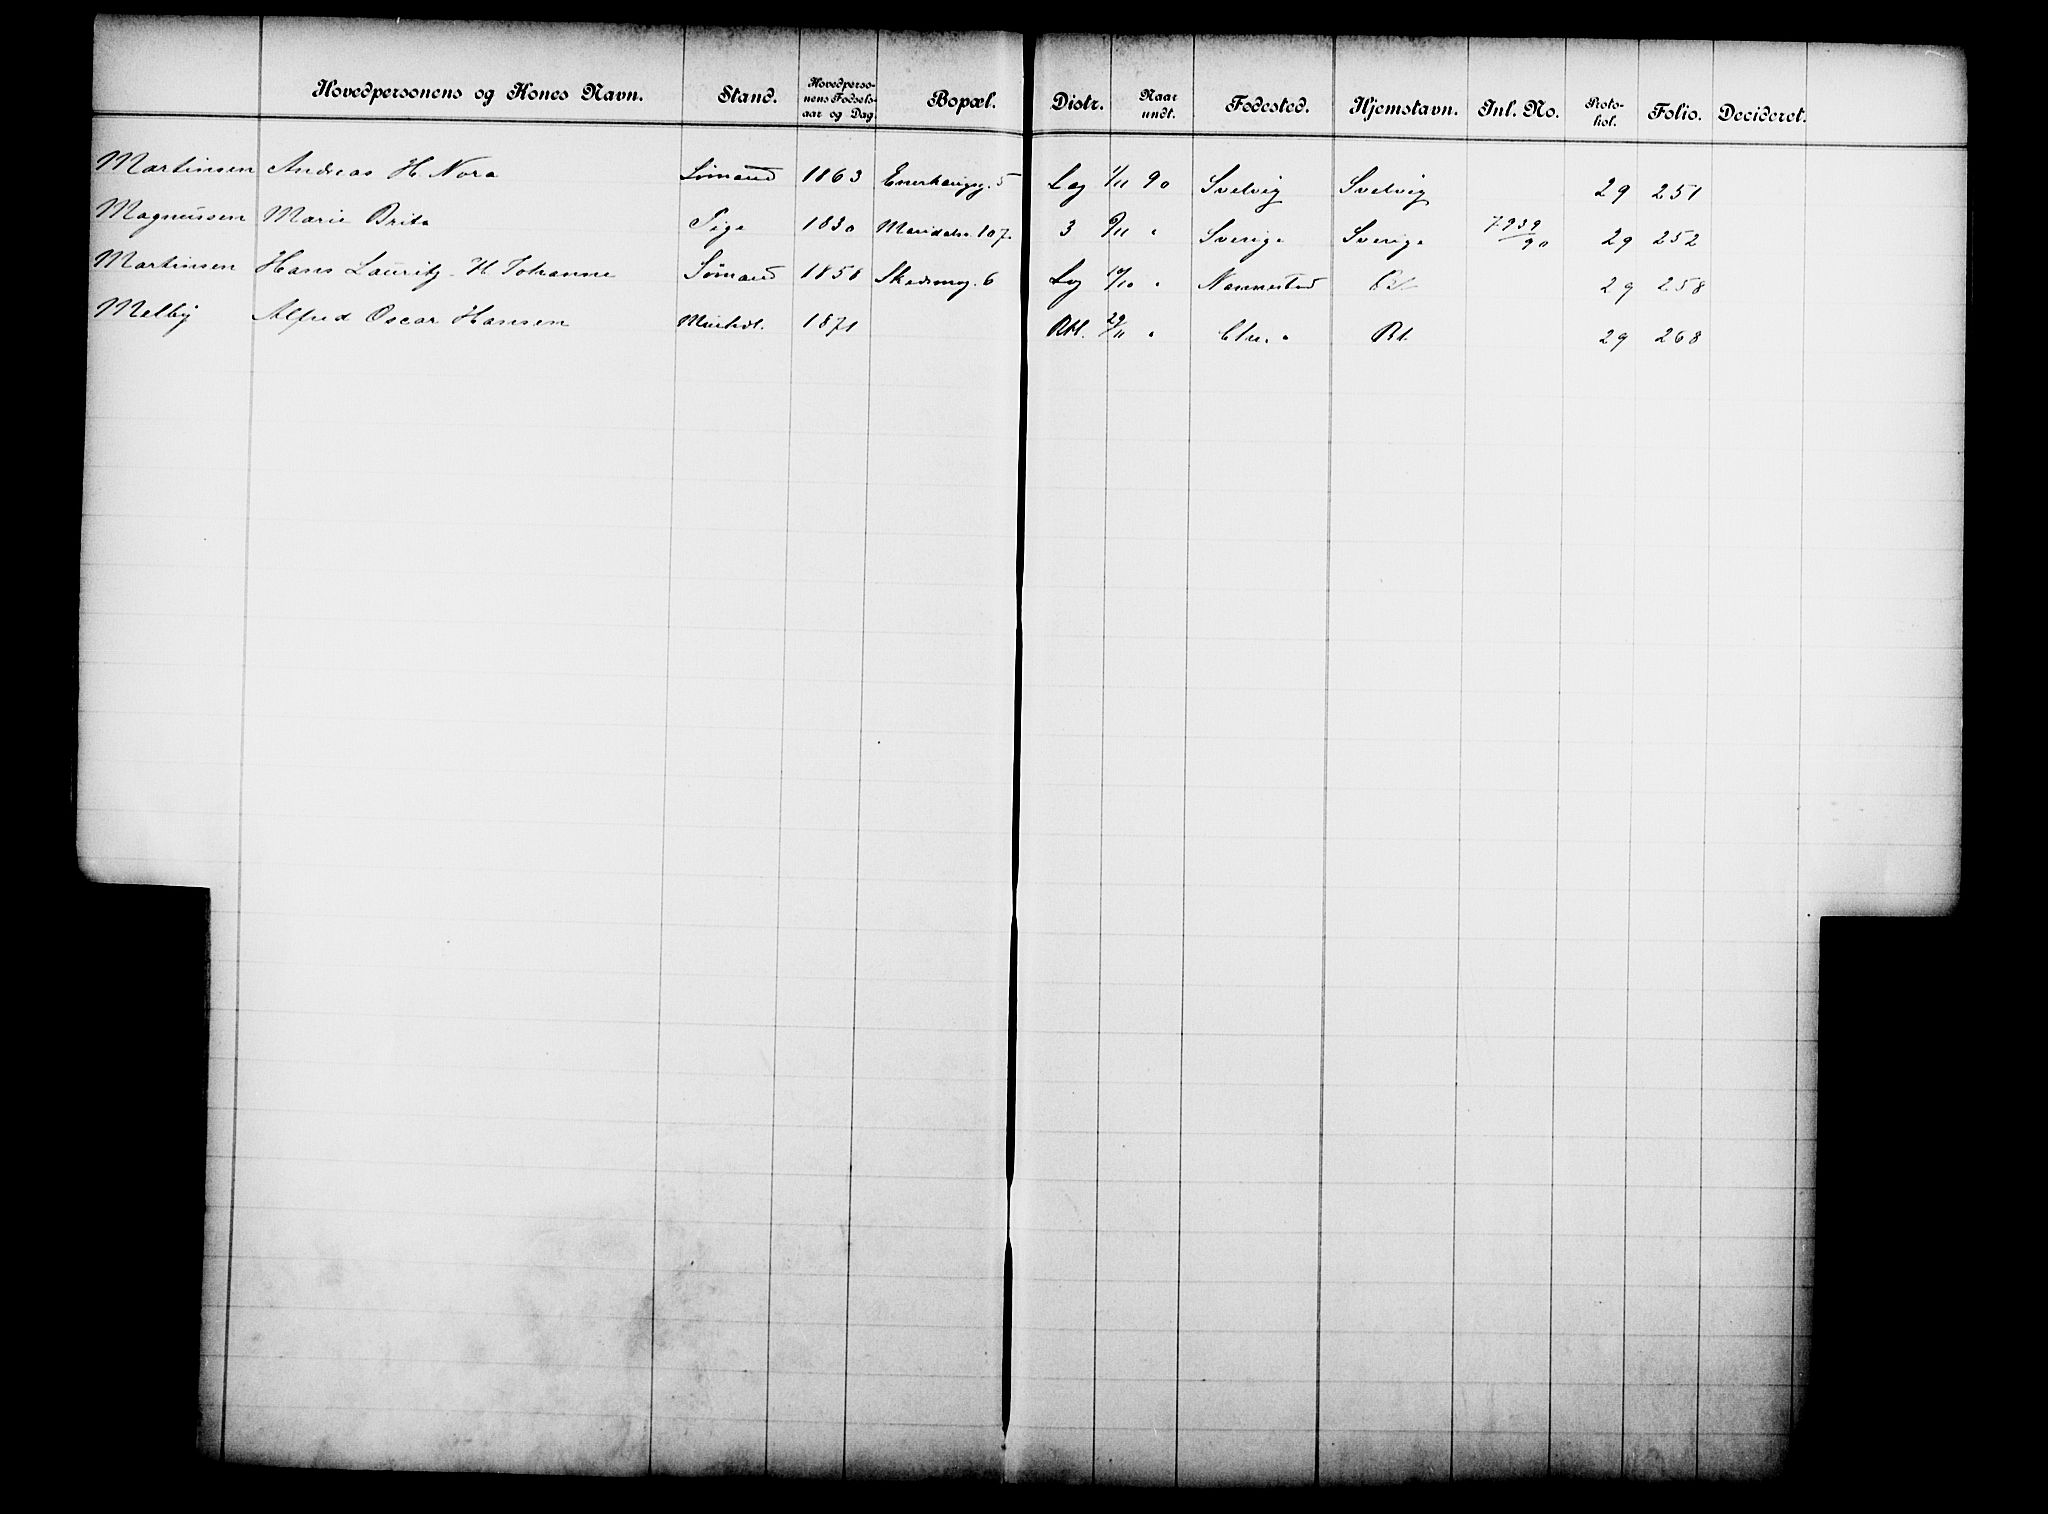 Hovedpersonens og Kones Navn. Stand. Hovedpersonens Fødselsaar og Dag. Bopæl. Distr. Naar undt. Fødested. Hjemstavn. Jnl. No. Protokol. Folio. Decideret.
Martinsen Andreas H. Nora Sømand 1863 Enerhaugg. 5 Lag 1/11 90 Svelvig Svelvig 29 251
Magnussen Marie Brita Pige 1830 Maridalsv. 107. 3 9/11 " Sverige Sverige 7939/90 29 252
Martinsen Hans Lauritz H Johanne Sømand 1858 Skedsmog. 6 10/10 " 29 258
Melby Alfred Oscar Hansen 1871 29/11 " Chr. a 29 268